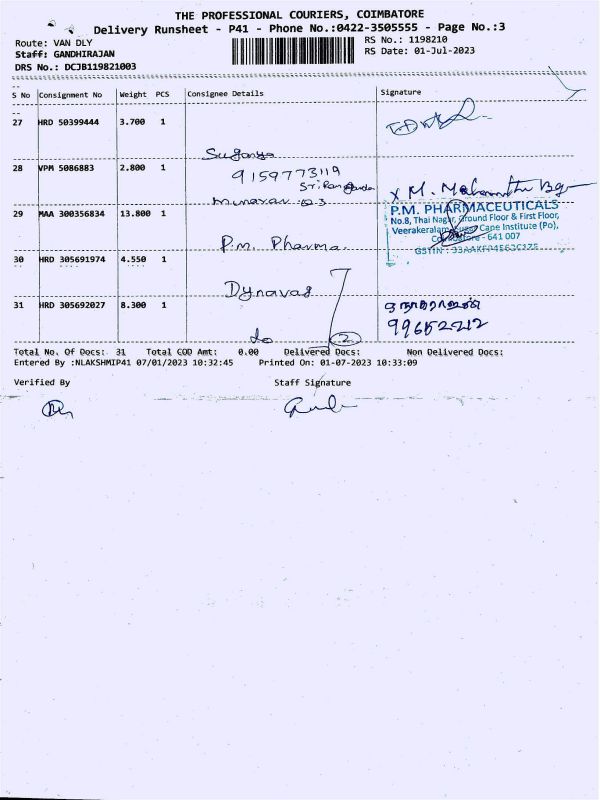 THE PROFESSIONAL COURIERS, COIMBATORE
Delivery Runsheet - P41 - Phone No.:0422-3505555 - Page No.:3
Route: VAN DLY
RS No.: 1198210
Staff: GANDHIRAJAN
RS Date: 01-Jul-2023
DRS No.: DCJB119821003
S No Consignment No Weight PCS Consignee Details Signature
27 HRD 50399444 3.700 1
Suganya
28 VPM 5086883 2.800 1
9159773119
29 MAA 300356834 13.800 1
P.M. PHARMACEUTICALS
No.8, Thai Nagar, Ground Floor & First Floor,
Veerakeralam, Sugar Cane Institute (Po),
Coimbatore - 641 007
P.m. Pharma.
30 HRD 305691974 4.550 1
31 HRD 305692027 8.300 1
do 2
Total No. Of Docs: 31 Total COD Amt: 0.00 Delivered Docs: Non Delivered Docs:
Entered By :NLAKSHMIP41 07/01/2023 10:32:45 Printed On: 01-07-2023 10:33:09
Verified By Staff Signature